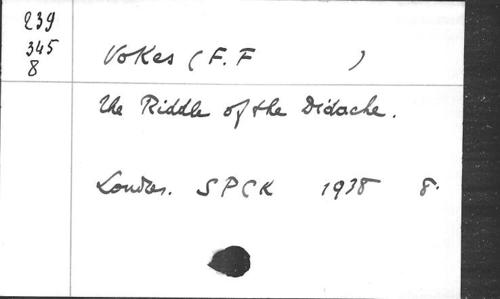 239
345
8
Vokes (F.F )
The Riddle of the Didache.
Londres. SPCK 1938 8.